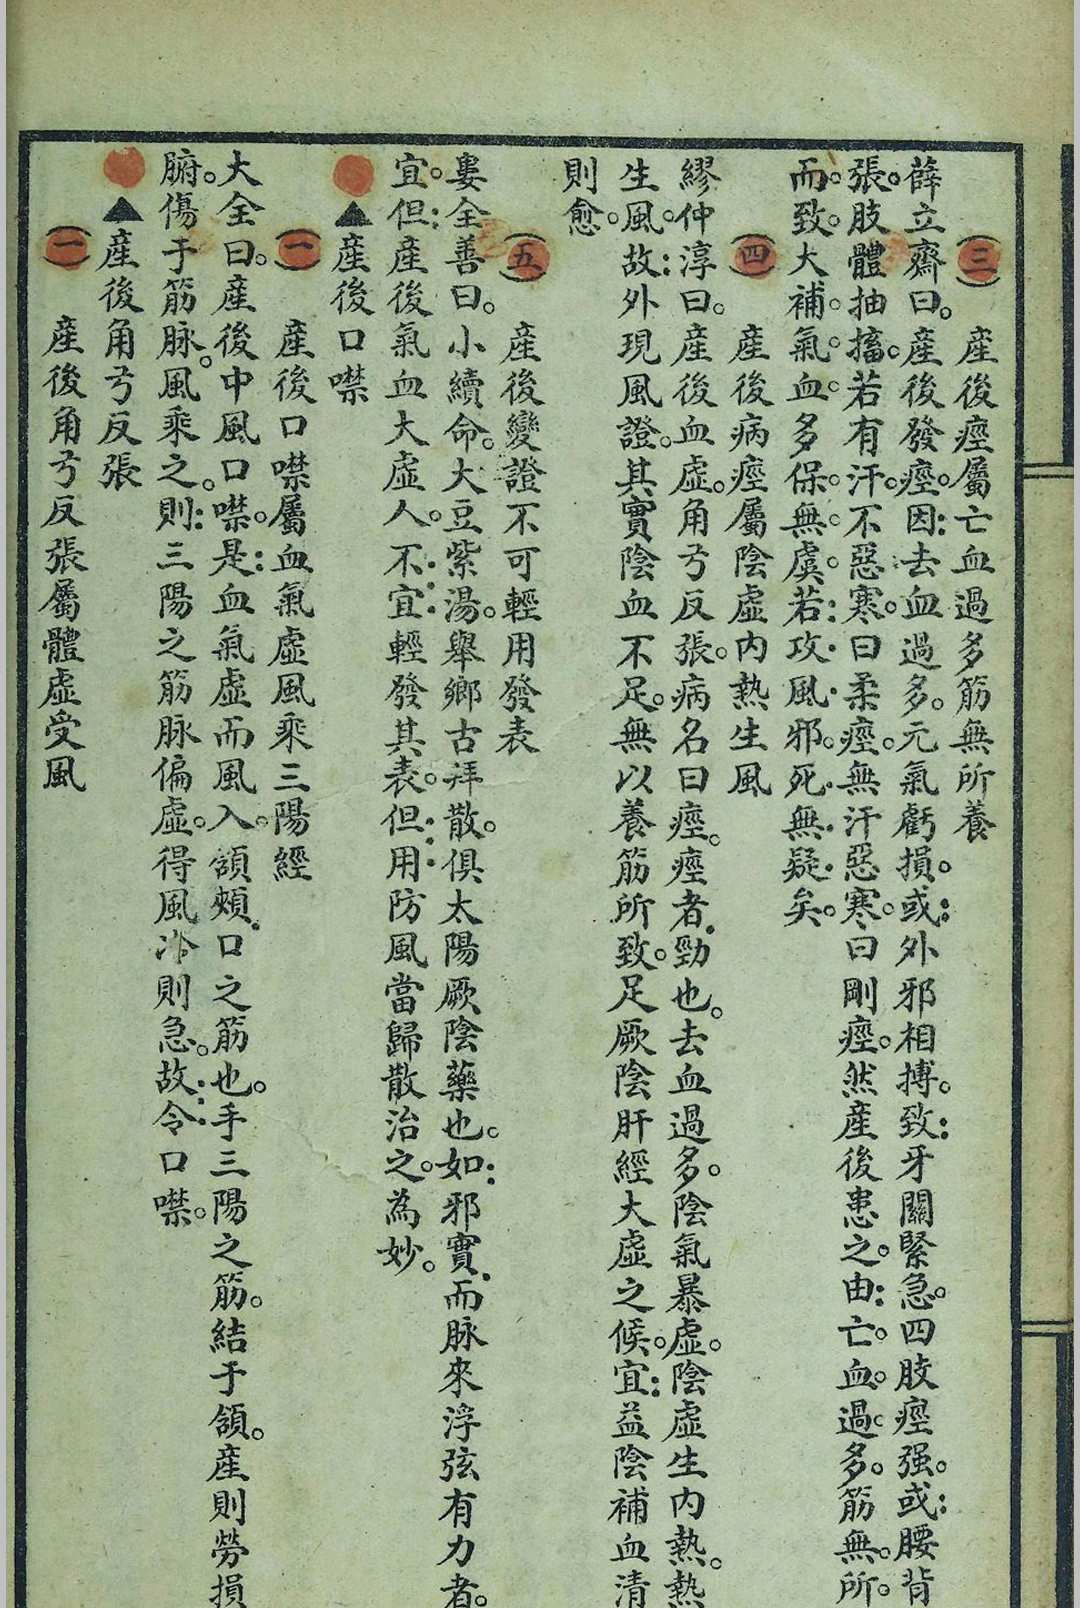 (三) 産後痙屬亡血過多筋無所養
薛立齋曰。産後發痙。因去血過多。元氣虧損。或外邪相搏。致牙關緊急。四肢痙强。或腰背
張。肢體抽搐。若有汗。不惡寒。曰柔痙。無汗惡寒。曰剛痙。然産後患之。由亡血過多。筋無所
而致。大補氣血。多保無虞。若攻風邪。死無疑矣。
(四) 産後病痙屬陰虛内熱生風
繆仲淳曰。産後血虛。角弓反張。病名曰痙。痙者勁也。去血過多。陰氣暴虛。陰虛生内熱。熱
生風。故外現風證。其實陰血不足。無以養筋所致。足厥陰肝經大虛之候。宜益陰補血清
則愈。
(五) 産後變證不可輕用發表
婁全善曰。小續命。大豆紫湯。舉鄉古拜散。俱太陽厥陰藥也。如邪實而脉來浮弦有力者。
宜。但産後氣血大虛人。不宜輕發其表。但用防風當歸散治之。為妙。
▲産後口噤
(一) 産後口噤屬血氣虛風乘三陽經
大全曰。産後中風口噤。是血氣虛而風入。頷頰口之筋也。手三陽之筋。結于頷。産則勞損
腑。傷于筋脉。風乘之。則三陽之筋脉偏虛。得風冷則急。故令口噤。
▲産後角弓反張
(一) 産後角弓反張屬體虛受風